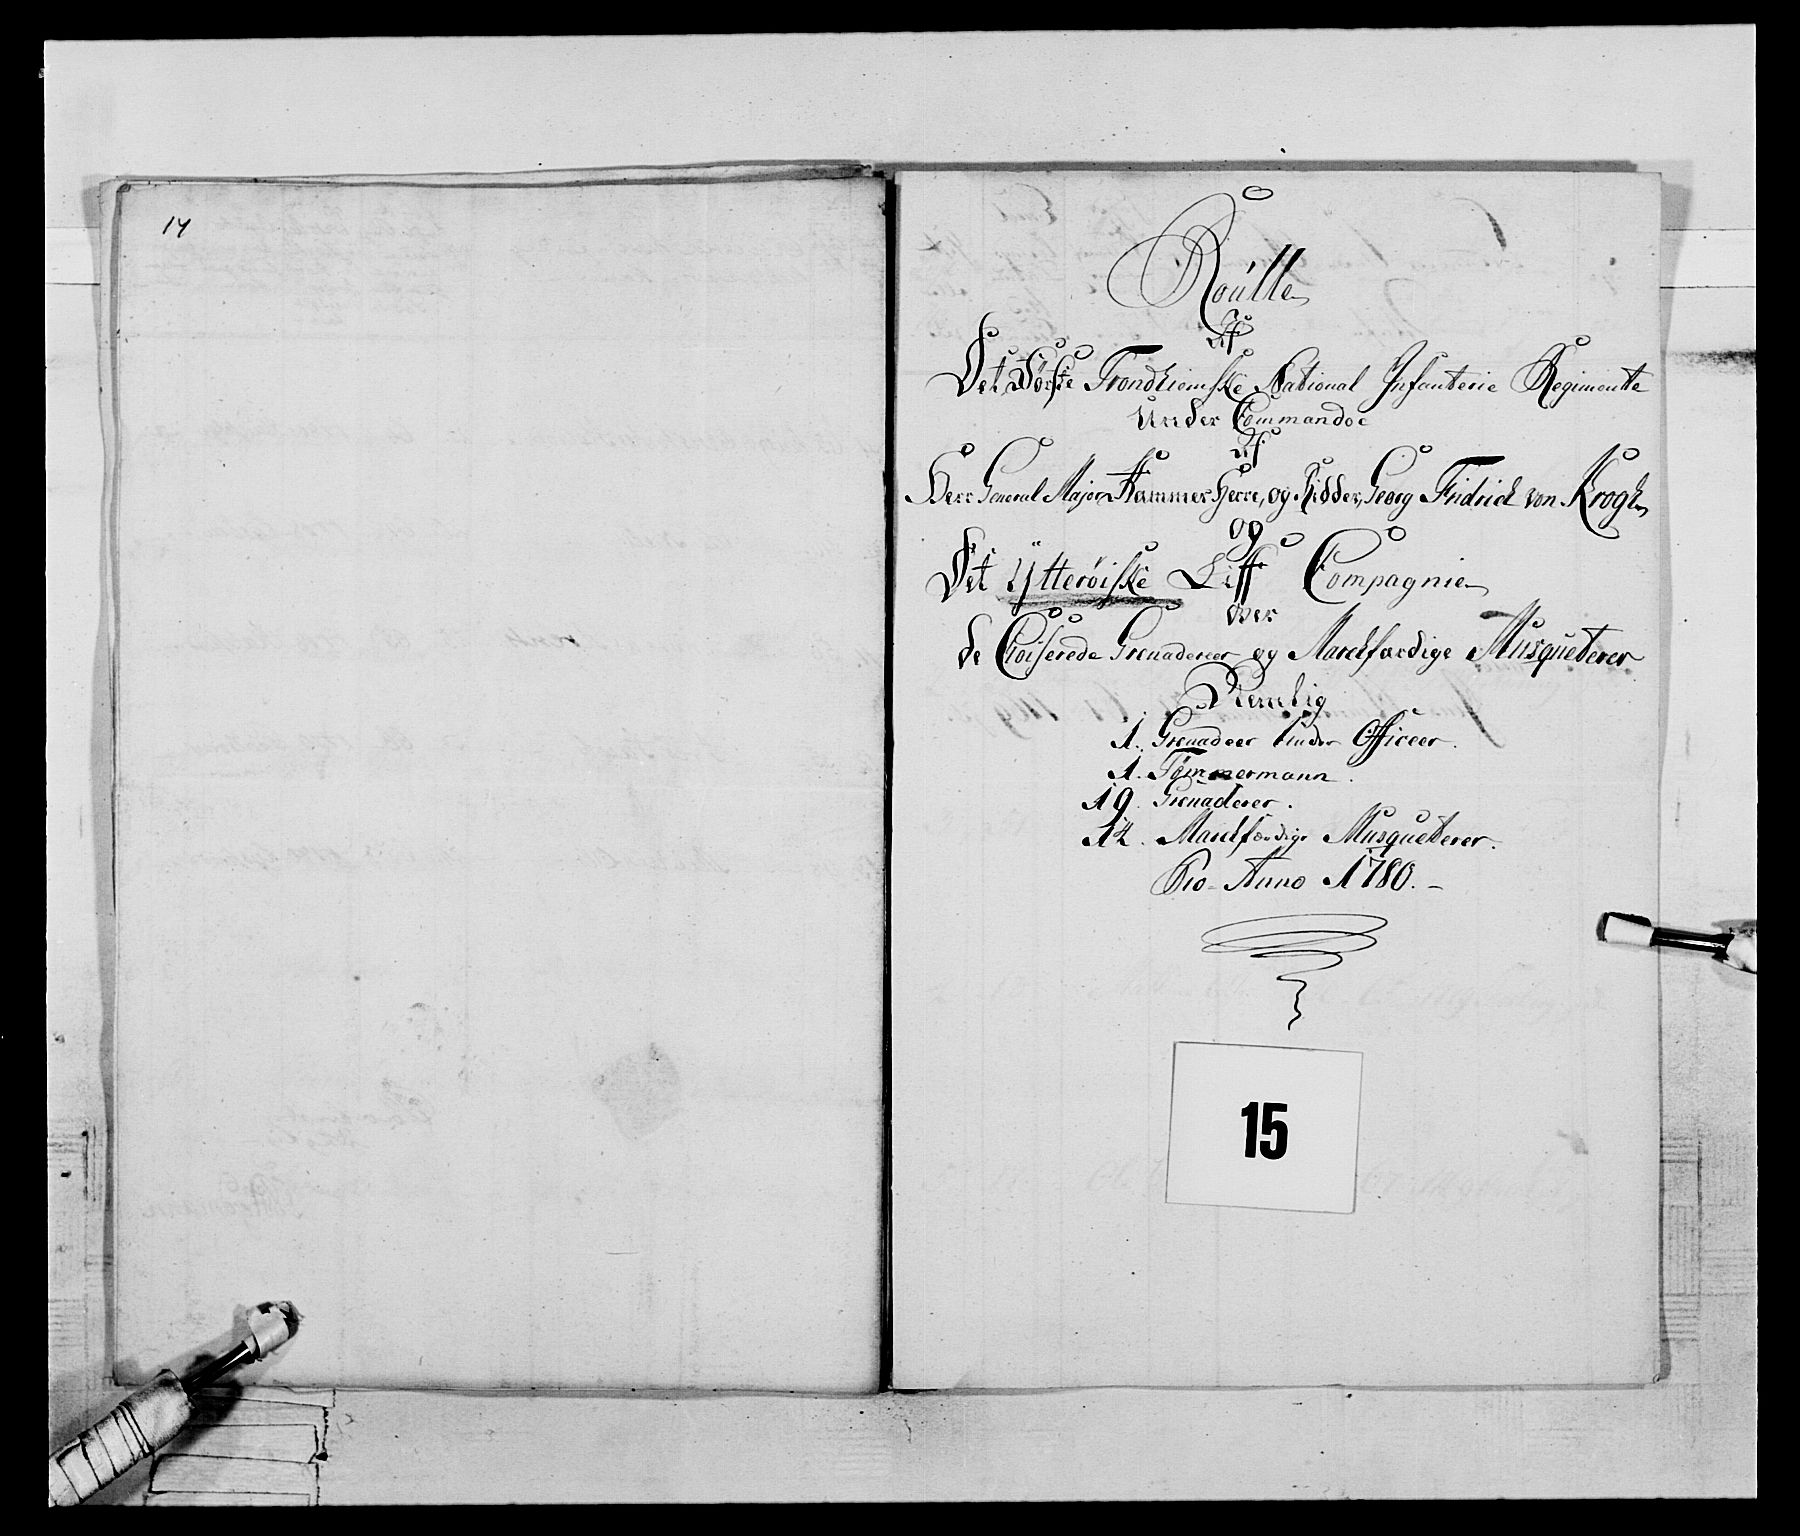 14
Roúlle
Af
Det Første Trondhiemske National Infanterie Regimente
Under Commandoe
Af
Herr General Major, Kammer Herre, og Ridder, Georg Fridrich von Krogh
og
Det Ytterøiske Liff Compagnie
over
de Choiserede Grenaderer og Marchfærdige Musqueterer
Nemlig
1. Grenadeer Under Officeer.
1. Tømmermann.
19. Grenaderer.
12. Marchfærdige Musqueterer.
Pro Anno 1780. –
15